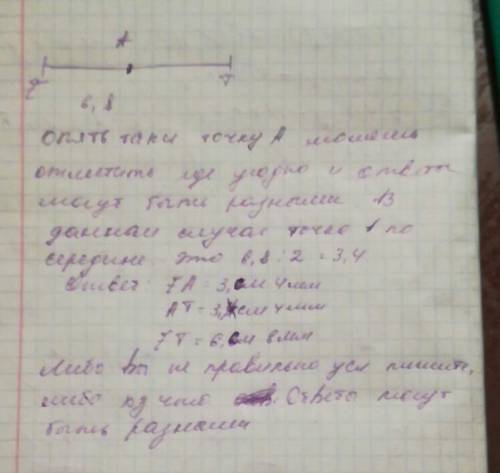 А
F T
6,8
Опять таки точку А можешь
отметить где угодно и ответы
могут быть разными В
данном случае точка по
середине это 6,8 : 2 = 3,4
Ответ: FA = 3,см 4мм
AT = 3,см 4мм
FT = 6,см 8мм
Либо вы не правильно усл пишите,
либо Ответы могут
быть разными